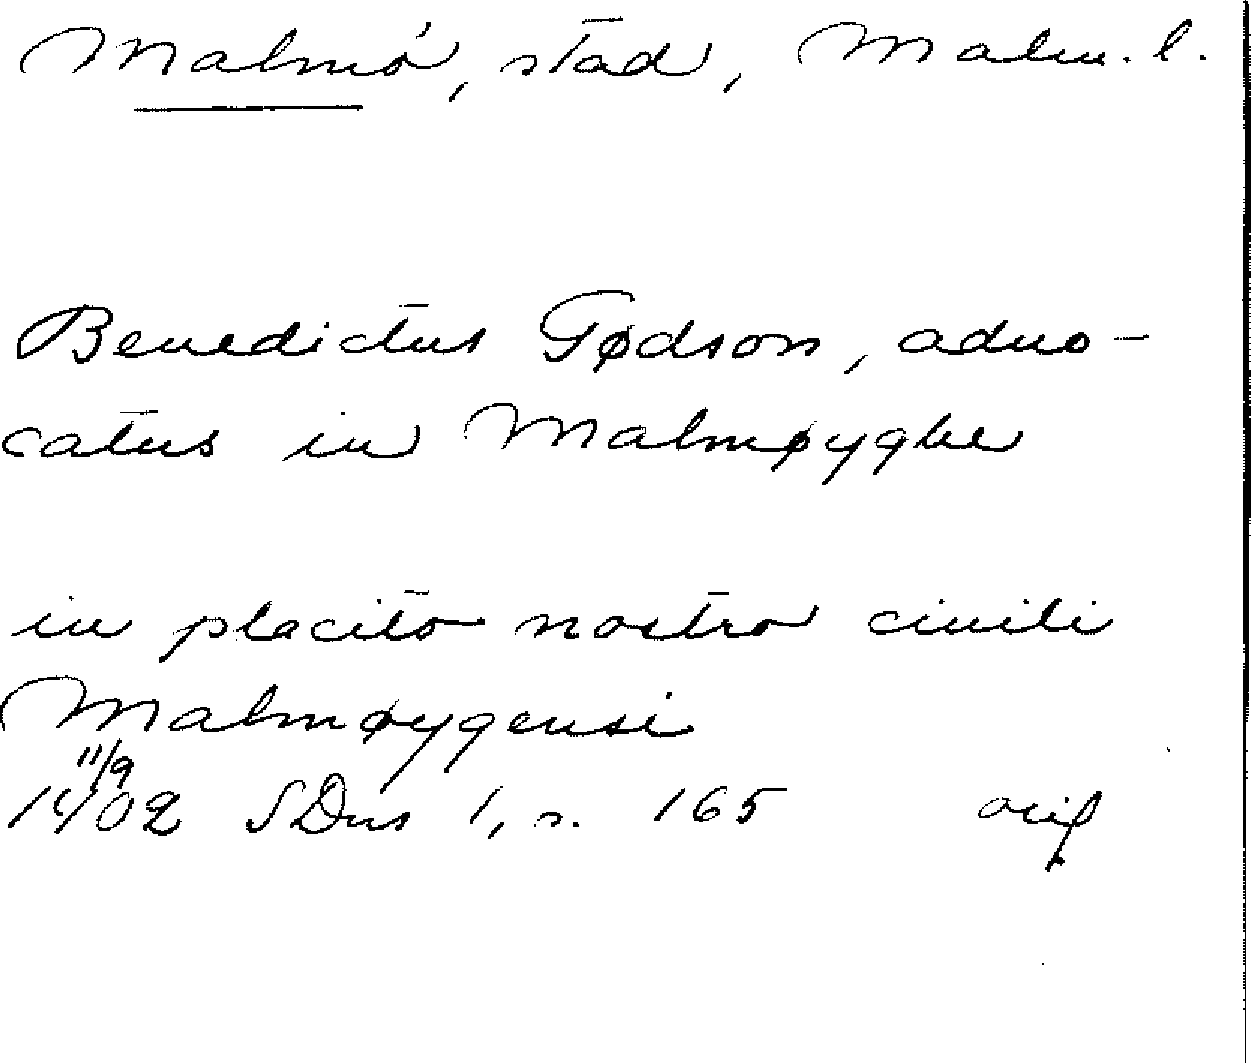 Malmö, stad, Malm. l.
Benedictus Gødson, aduo-
catus in Malmøyghe
in placito nostro ciuili
Malmøygensi
11/9
1402 SDns 1, s. 165 orig